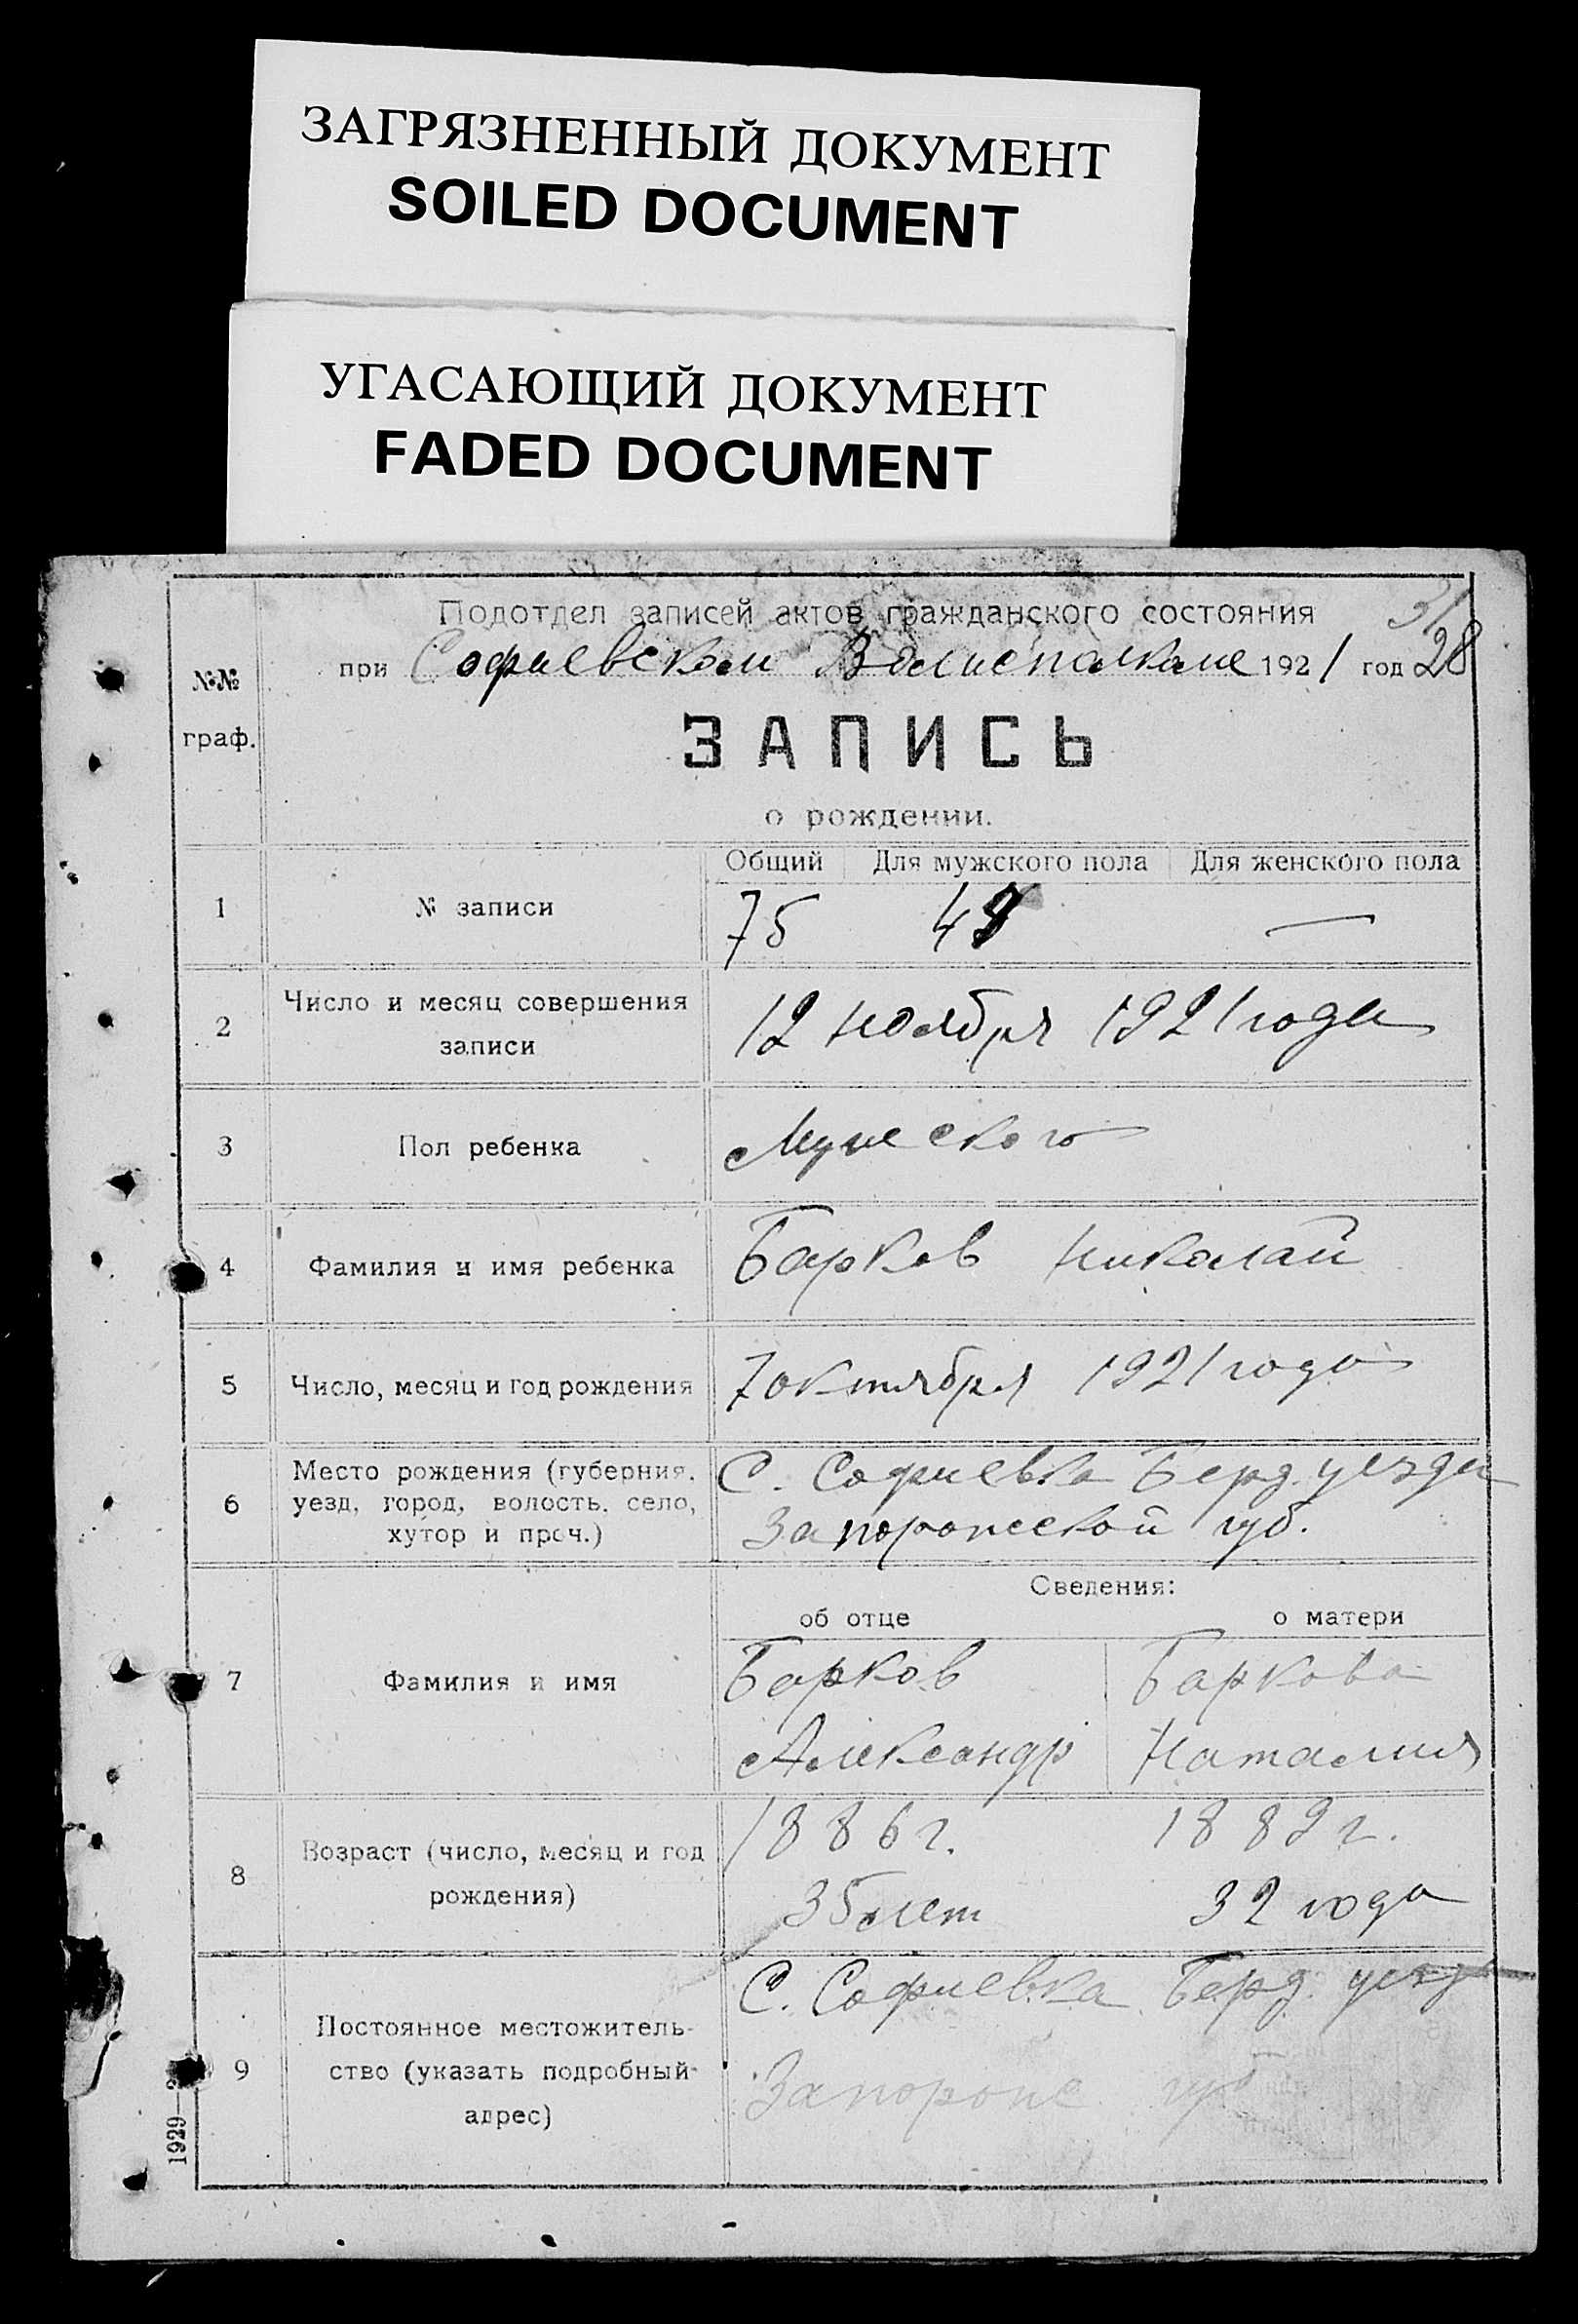 ЗАГРЯЗНЕННЫЙ ДОКУМЕНТ
SOILED DOCUMENT
УГАСАЮЩИЙ ДОКУМЕНТ
FADED DOCUMENT
31
Подотдел записей актов гражданского состояния
при Софиевском Волисполкоме 1921 год 28
№№
граф.
ЗАПИСЬ
о рождении.
Общий Для мужского пола Для женского пола
1 № записи 75 —
2 Число и месяц совершения
записи
12 ноября 1921 года
3 Пол ребенка Мужского
4 Фамилия и имя ребенка Барков Николай
5 Число, месяц и год рождения 7 октября 1921 года
6 Место рождения (губерния,
уезд, город, волость, село,
хутор и проч.)
С. Софиевка Берд. уезда
Запорожской губ.
Сведения:
об отце о матери
7 Фамилия и имя
Барков Баркова
Александр Наталия
8 Возраст (число, месяц и год
рождения)
1886 г. 1889 г.
35 лет 32 года
9 Постоянное местожитель-
ство (указать подробный
адрес)
С. Софиевка Берд. уезд
Запорож губ
1929—2